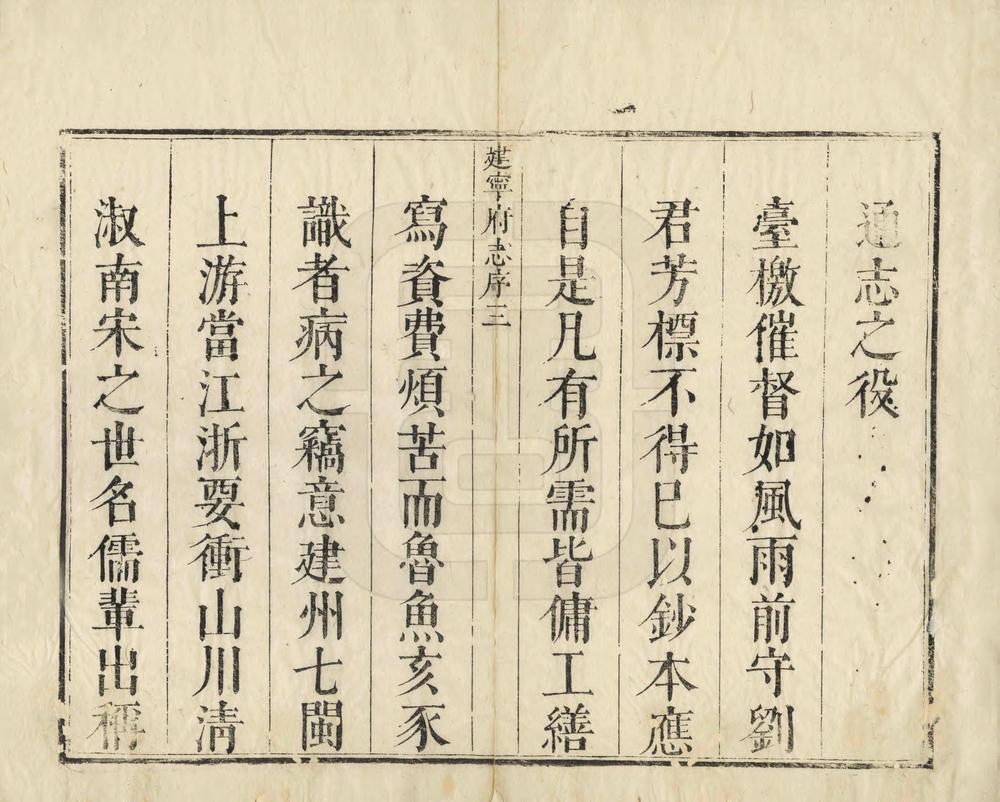 通志之役
臺檄催督如風雨前守劉
君芳標不得已以鈔本應
自是凡有所需皆傭工繕
建寧府志序三
寫資費煩苦而魯魚亥豕
識者病之竊意建州七閩
上游當江浙要衝山川清
淑南宋之世名儒輩出稱